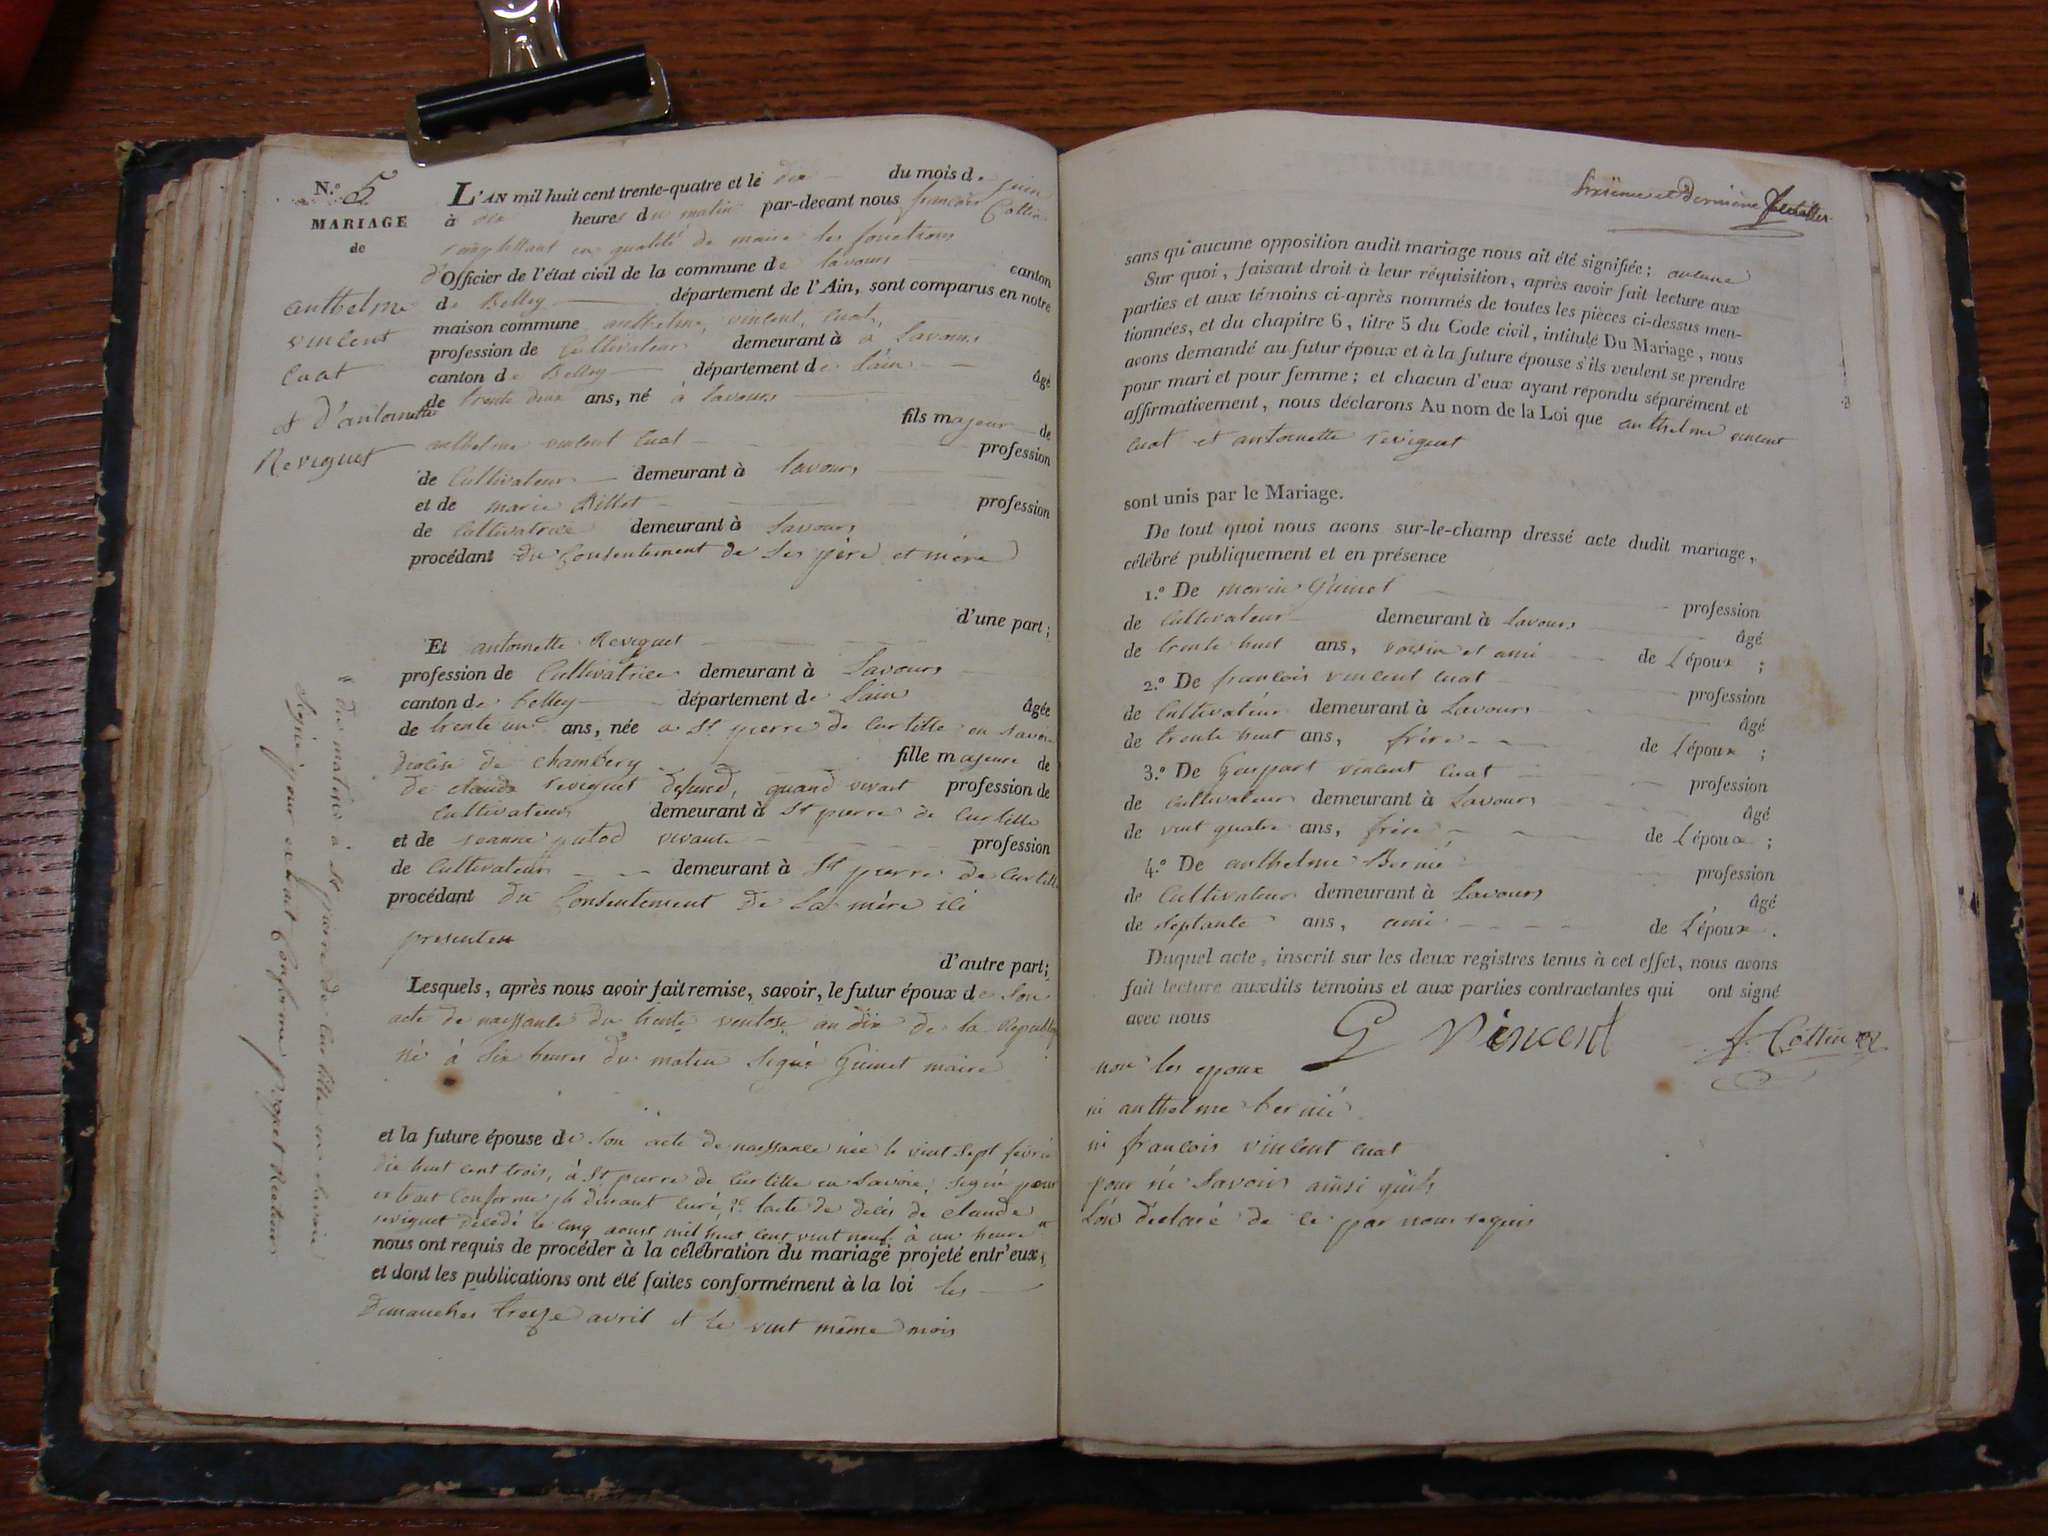 N.º 5
MARIAGE
de
anthelme
vincent
cuat
et d'antoinette
Reviguet
L'AN mil huit cent trente-quatre et le dix du mois de juin
à dix heures du matin par-devant nous francois Collin
remplissant en qualité de maire les fonctions
d'Officier de l'état civil de la commune de lavours canton
de Belley département de l'Ain, sont comparus en notre
maison commune anthelme, vincent, cuat,
profession de Cultivateur demeurant à a Lavours
canton de Belley département de l'ain âgé
de trente deux ans, né à lavours
fils majeur de
anthelme vincent cuat profession
de Cultivateur demeurant à lavours
et de marie Billet profession
de Cultivatrice demeurant à Lavours
procédant du Consentement de Ses père et mère
d'une part;
Et antoinette Reviguet
profession de Cultivatrice demeurant à Lavours
canton de belley département de Lain âgée
de trente un ans, née a St pierre de Curtille en Savoie
diocèse de chambery fille majeure de
de claude reviguet defund, quand vivait profession de
Cultivateur demeurant à St pierre de Curtille
et de jeanne putod vivante profession
de Cultivateur demeurant à St pierre de Curtille
procédant du Consentement de La mère ici
presente
d'autre part;
Lesquels, après nous avoir fait remise, savoir, le futur époux de Son
acte de naissance du trente ventose an dix de la Republiq
né à Six heures du matin Signé Guinet maire
et la future épouse de Son acte de naissance née le vint Sept février
dix huit cent trois, à St pierre de Curtille en Savoie, Signé pour
extrait Conforme durant curé, 2º lacte de décès de claude
reviguet décédé le cinq aoust mil huit cent vint neuf à un heure
nous ont requis de procéder à la célébration du mariage projeté entr'eux,
et dont les publications ont été faites conformément à la loi les
Dimanches treize avril et le vint même mois
" du matin à St pierre de Curtille en Savoie
Signé pour extrait Conforme Recteur
Sixième et Dernière feuillet
sans qu'aucune opposition audit mariage nous ait été signifiée; aucune
Sur quoi, faisant droit à leur réquisition, après avoir fait lecture aux
parties et aux témoins ci-après nommés de toutes les pièces ci-dessus men-
tionnées, et du chapitre 6, titre 5 du Code civil, intitulé Du Mariage, nous
avons demandé au futur époux et à la future épouse s'ils veulent se prendre
pour mari et pour femme; et chacun d'eux ayant répondu séparément et
affirmativement, nous déclarons Au nom de la Loi que anthelme vincent
cuat et antoinette reviguet
sont unis par le Mariage.
De tout quoi nous avons sur-le-champ dressé acte dudit mariage,
célébré publiquement et en présence
1.º De marin Guinet profession
de Cultivateur demeurant à Lavours âgé
de trente huit ans, voisin et ami de L'époux ;
2.º De francois vincent cuat profession
de Cultivateur demeurant à Lavours âgé
de trente huit ans, frère de L'époux ;
3.º De Gaspart vincent cuat profession
de cultivateur demeurant à Lavours âgé
de vint quatre ans, frère de L'époux ;
4.º De anthelme Bernié profession
de Cultivateur demeurant à Lavours âgé
de septante ans, ami de L'époux .
Duquel acte, inscrit sur les deux registres tenus à cet effet, nous avons
fait lecture auxdits témoins et aux parties contractantes qui ont signé
avec nous
G Vincent
f. Collin
non les epoux
ni anthelme bernié
ni francois vincent cuat
pour né Savoir ainsi qu'ils
L'on declaré de ce par nous requis